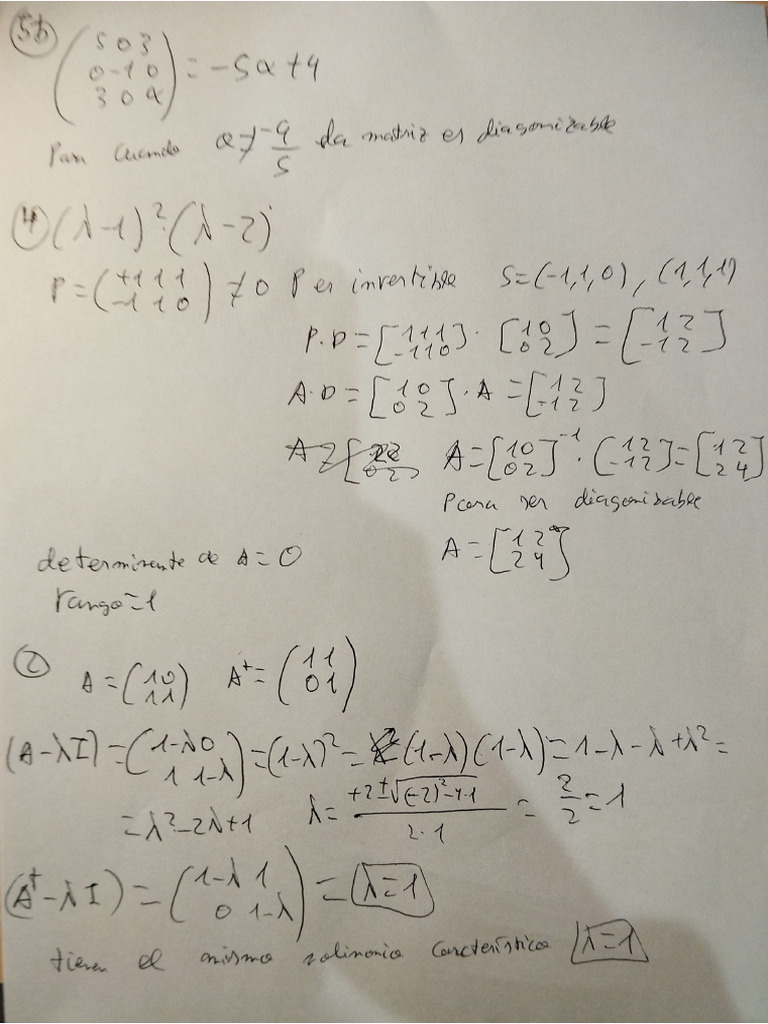 5b) (5 0 3
0 -1 0
3 0 α) = -5α+9
Para cuando α ≠ -9/5 da matriz es diagonizable
4) (λ-1)²·(λ-2)
P = (+1 1 1
-1 1 0) ≠ 0 P es invertible S=(-1,1,0), (1,1,1)
P·D = [-1 1 1
-1 1 0] · [1 0
0 2] = [1 2
-1 2]
A·D = [1 0
0 2] · A = [1 2
-1 2]
A = [1 0
0 2]⁻¹ · (1 2
-1 2) = [1 2
2 4]
para ser diagonizable
A = [1 2
2 4]
determinante de A = 0
rango = 1
2) A = (1 0
1 1) Aᵗ = (1 1
0 1)
(A-λI) = (1-λ 0
1 1-λ) = (1-λ)² = (1-λ)(1-λ) = 1-λ-λ+λ² =
= λ²-2λ+1 λ = (+2±√((-2)²-4·1))/(2·1) = 2/2 = 1
(Aᵗ-λI) = (1-λ 1
0 1-λ) = λ=1
tienen el mismo polinomio característico λ=1